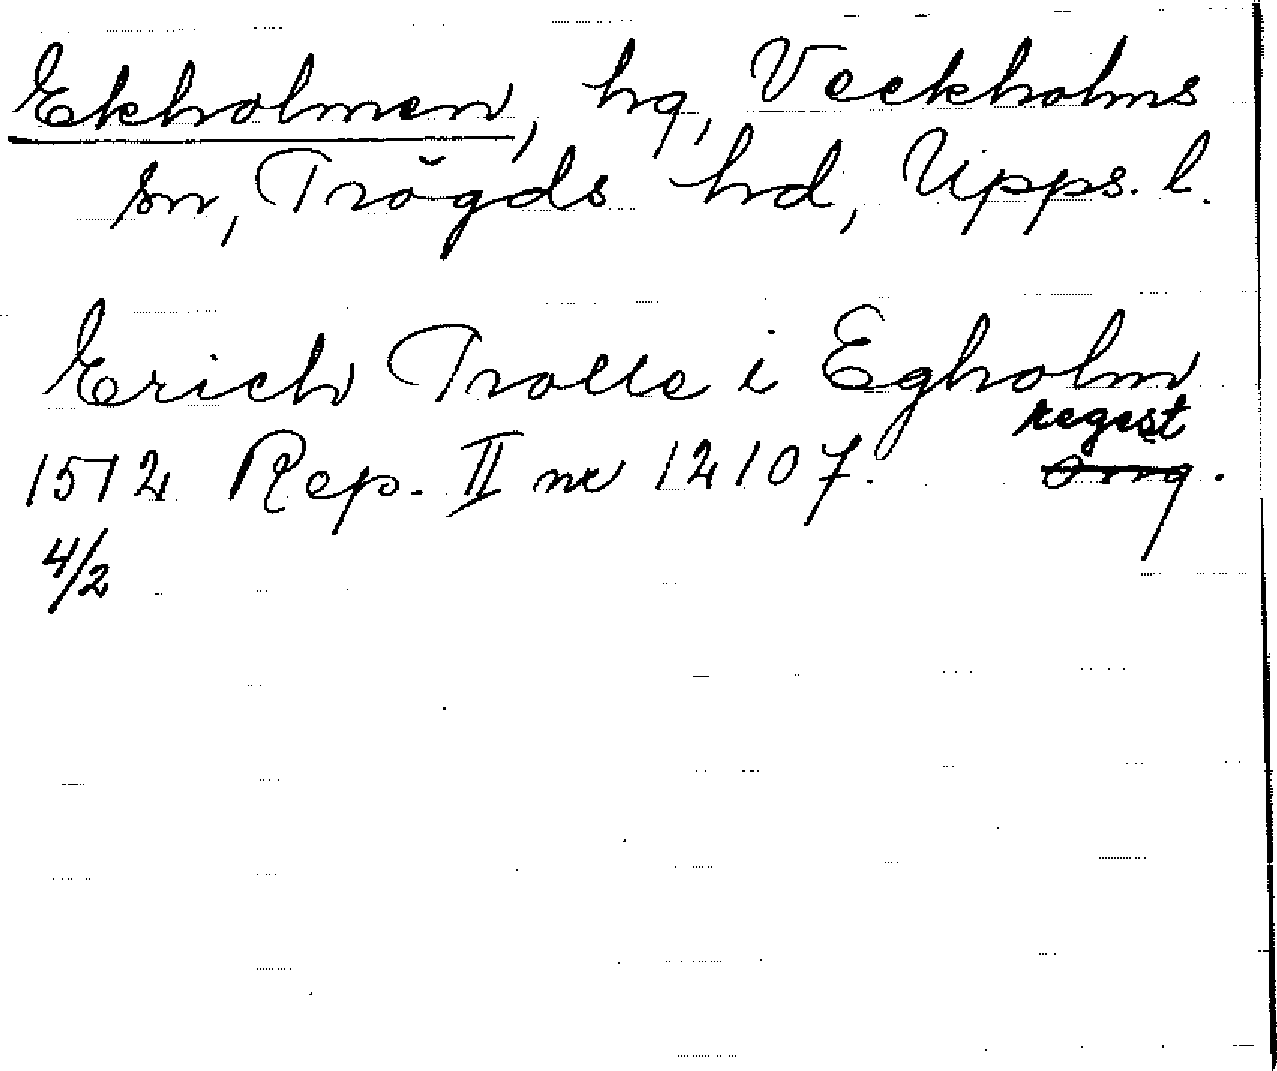 Ekholmen, hg, Veckholms
sn, Trögds hd, Upps. l.
Erich Trolle i Egholm
regest
1512 Rep. II nr 12107. Omg.
4/2